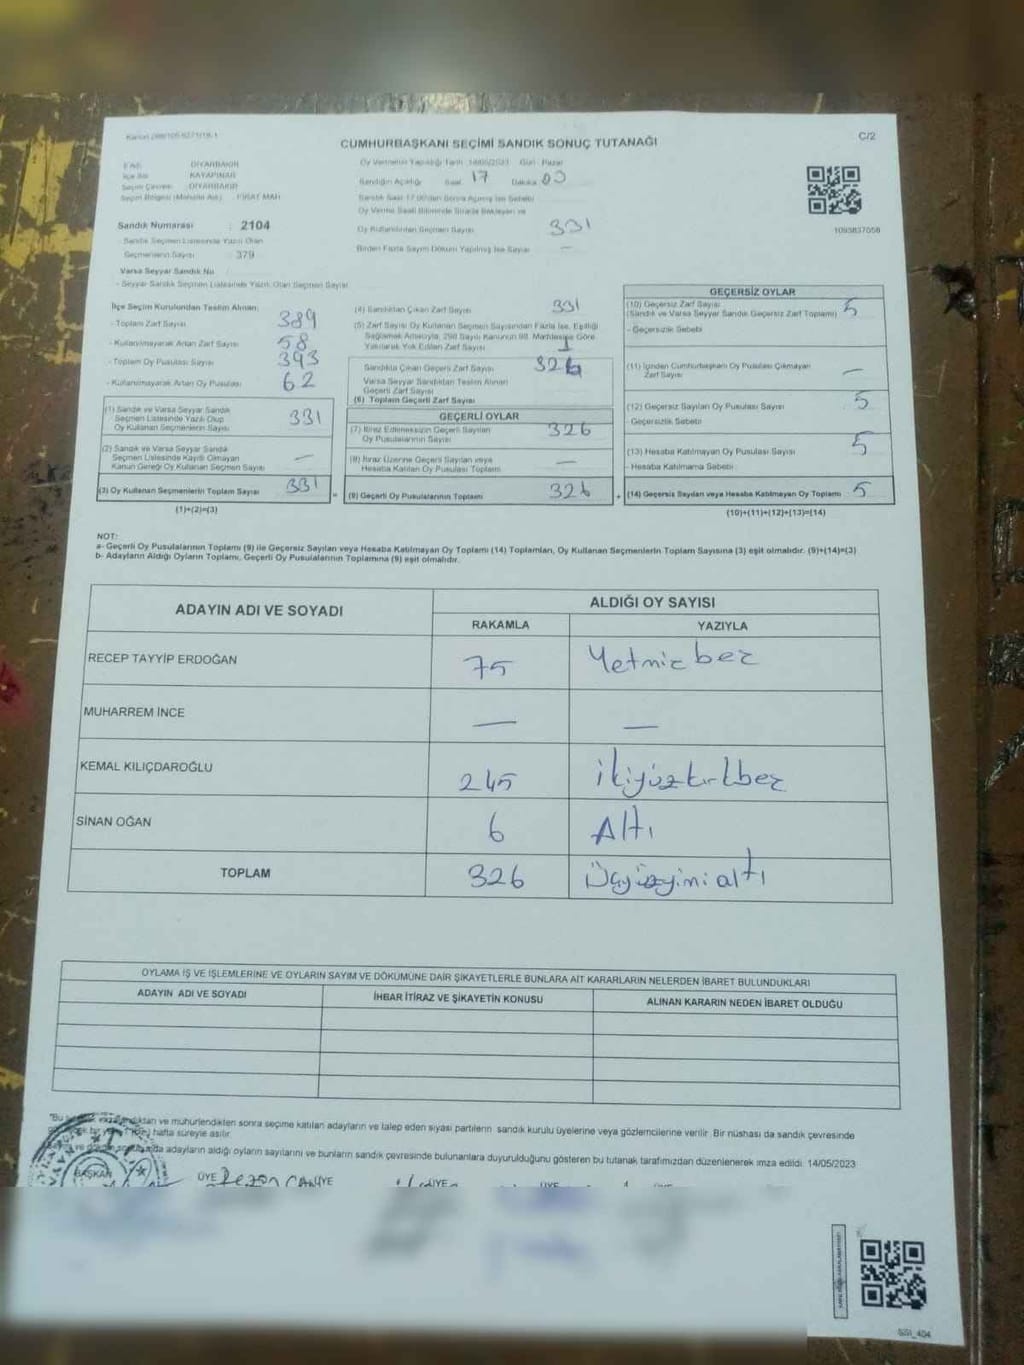 C/2
CUMHURBAŞKANI SEÇİMİ SANDIK SONUÇ TUTANAĞI
DİYARBAKIR
İlçe Adı KAYAPINAR
Seçim Çevresi DİYARBAKIR
Seçim Bölgesi (Mahalle Adı) FIRAT MAH
Sandık Numarası : 2104
- Sandık Seçmen Listesinde Yazılı Olan
Seçmenlerin Sayısı : 379
Varsa Seyyar Sandık No
- Seyyar Sandık Seçmen Listesinde Yazılı Olan Seçmen Sayısı
Oy Vermenin Yapıldığı Tarih :14/05/2023 Gün : Pazar
Sandığın Açıldığı Saat 17 Dakika 00
Oy Kullandırılan Seçmen Sayısı 331
Birden Fazla Sayım Döküm Yapılmış İse Sayısı —
1093837058
İlçe Seçim Kurulundan Teslim Alınan:
- Toplam Zarf Sayısı 389
- Kullanılmayarak Artan Zarf Sayısı 58
- Toplam Oy Pusulası Sayısı 393
- Kullanılmayarak Artan Oy Pusulası 62
(1) Sandık ve Varsa Seyyar Sandık
Seçmen Listesinde Yazılı Olup
Oy Kullanan Seçmenlerin Sayısı 331
(2) Sandık ve Varsa Seyyar Sandık
Seçmen Listesinde Kayıtlı Olmayan
Kanun Gereği Oy Kullanan Seçmen Sayısı —
(3) Oy Kullanan Seçmenlerin Toplam Sayısı 331
(1)+(2)=(3)
(4) Sandıktan Çıkan Zarf Sayısı 331
(5) Zarf Sayısı Oy Kullanan Seçmen Sayısından Fazla İse, Eşitliği
Sağlamak Amacıyla, 298 Sayılı Kanunun 98. Maddesine Göre
Yakılarak Yok Edilen Zarf Sayısı
Sandıkta Çıkan Geçerli Zarf Sayısı 326
Varsa Seyyar Sandıktan Teslim Alınan
Geçerli Zarf Sayısı
(6) Toplam Geçerli Zarf Sayısı
GEÇERLİ OYLAR
(7) İtiraz Edilmeksizin Geçerli Sayılan
Oy Pusulalarının Sayısı 326
(8) İtiraz Üzerine Geçerli Sayılan veya
Hesaba Katılan Oy Pusulası Toplamı —
(9) Geçerli Oy Pusulalarının Toplamı 326
GEÇERSİZ OYLAR
(10) Geçersiz Zarf Sayısı
(Sandık ve Varsa Seyyar Sandık Geçersiz Zarf Toplamı) 5
- Geçersizlik Sebebi
(11) İçinden Cumhurbaşkanı Oy Pusulası Çıkmayan
Zarf Sayısı —
(12) Geçersiz Sayılan Oy Pusulası Sayısı 5
- Geçersizlik Sebebi
(13) Hesaba Katılmayan Oy Pusulası Sayısı 5
- Hesaba Katılmama Sebebi
(14) Geçersiz Sayılan veya Hesaba Katılmayan Oy Toplamı 5
(10)+(11)+(12)+(13)=(14)
NOT:
a- Geçerli Oy Pusulalarının Toplamı (9) ile Geçersiz Sayılan veya Hesaba Katılmayan Oy Toplamı (14) Toplamları, Oy Kullanan Seçmenlerin Toplam Sayısına (3) eşit olmalıdır. (9)+(14)=(3)
b- Adayların Aldığı Oyların Toplamı, Geçerli Oy Pusulalarının Toplamına (9) eşit olmalıdır.
ADAYIN ADI VE SOYADI ALDIĞI OY SAYISI
RAKAMLA YAZIYLA
RECEP TAYYİP ERDOĞAN 75 Yetmiz bez
MUHARREM İNCE — —
KEMAL KILIÇDAROĞLU 245 ikiyüzkırkbez
SİNAN OĞAN 6 Altı
TOPLAM 326 Üçyüzyirmi altı
OYLAMA İŞ VE İŞLEMLERİNE VE OYLARIN SAYIM VE DÖKÜMÜNE DAİR ŞİKAYETLERLE BUNLARA AİT KARARLARIN NELERDEN İBARET BULUNDUKLARI
ADAYIN ADI VE SOYADI İHBAR İTİRAZ VE ŞİKAYETİN KONUSU ALINAN KARARIN NEDEN İBARET OLDUĞU
ve mühürlendikten sonra seçime katılan adayların ve talep eden siyasi partilerin sandık kurulu üyelerine veya gözlemcilerine verilir. Bir nüshası da sandık çevresinde
hafta süreyle asılır.
adayların aldığı oyların sayılarını ve bunların sandık çevresinde bulunanlara duyurulduğunu gösteren bu tutanak tarafımızdan düzenlenerek imza edildi. 14/05/2023
BAŞKAN ÜYE ÜYE ÜYE ÜYE